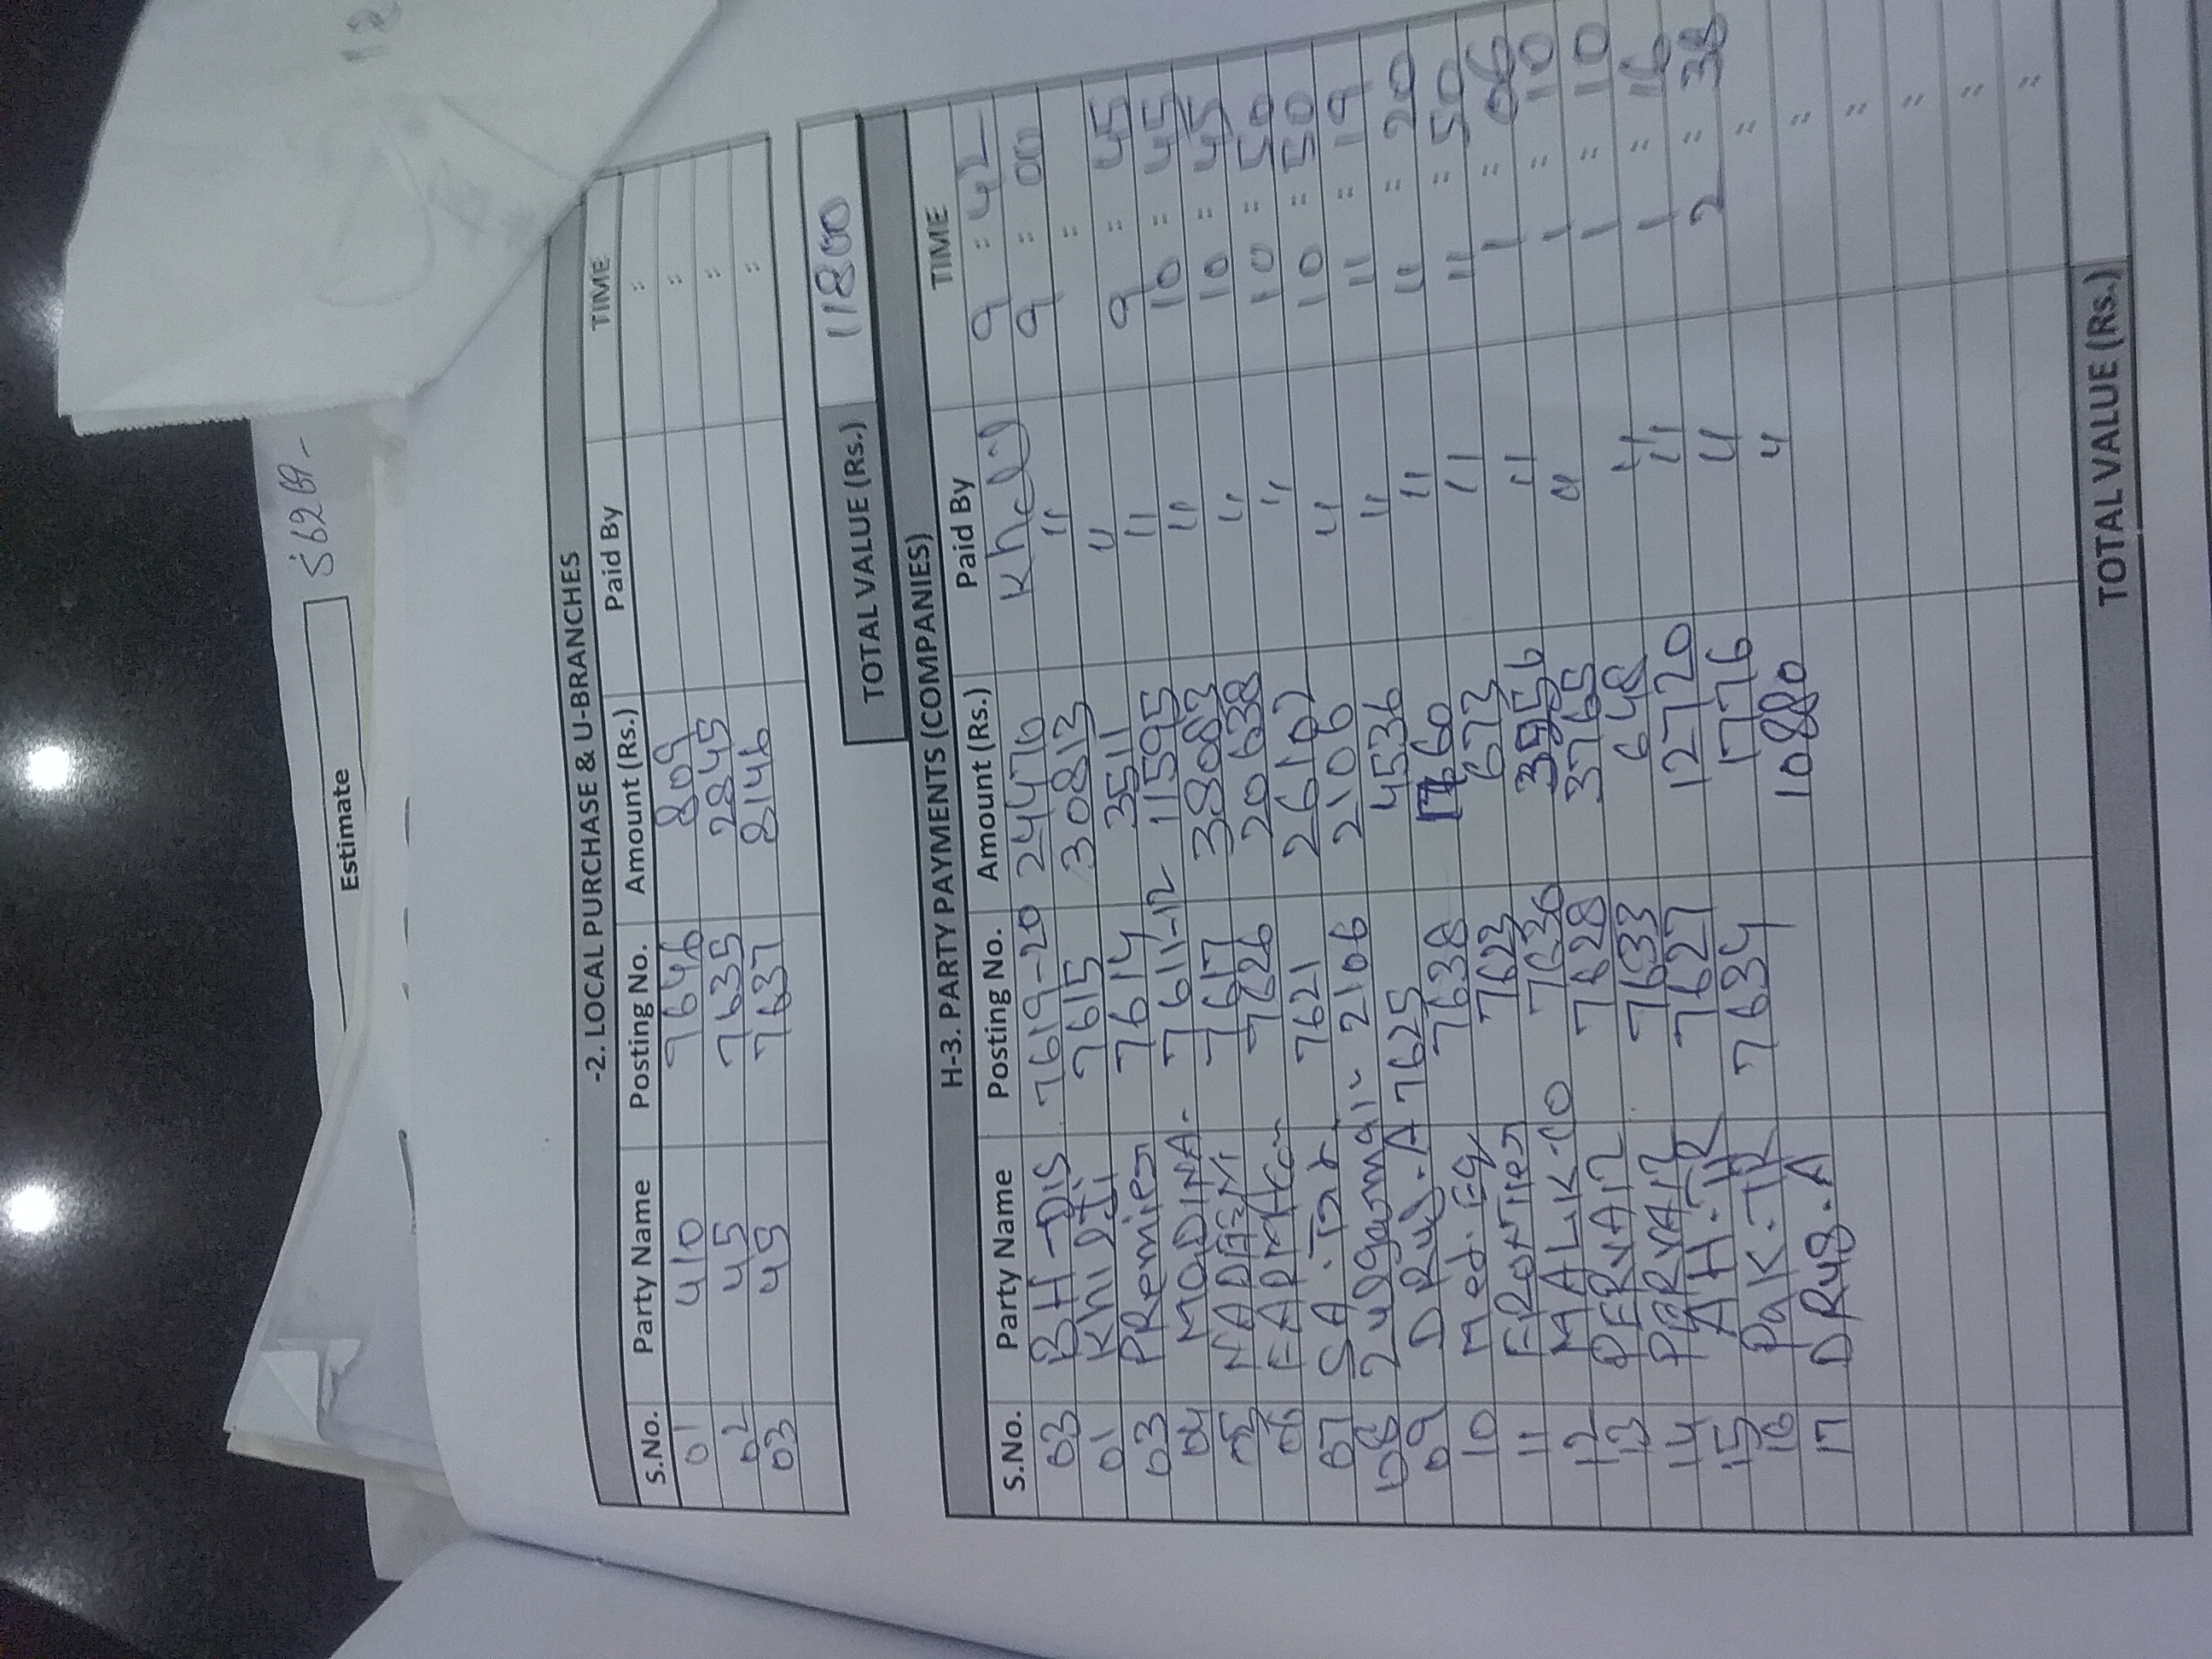 Estimate
5620/-
-2. LOCAL PURCHASE & U-BRANCHES
S.No. Party Name Posting No. Amount (Rs.) Paid By TIME
01 410 7646 809 :
02 45 7635 2845 :
03 49 7637 8146 :
TOTAL VALUE (Rs.) 11800
H-3. PARTY PAYMENTS (COMPANIES)
S.No. Party Name Posting No. Amount (Rs.) Paid By TIME
03 BH-DIS 7619-20 24470 9 : 42
01 Khildji 7615 30813 " 9 : 00
03 PRemier 7614 3511 " :
04 MADINA- 7611-12 11595 " 9 : 45
05 7617 38083 " 10 : 45
06 7626 20638 " 10 : 45
07 SA. 7621 26102 " 10 : 50
08 2106 2106 " 10 : 50
09 DRug.A 7625 4536 " 11 : 19
10 Med. 7638 1760 " 11 : 20
11 FRONTIER 7623 673 " 11 : 50
12 MALIK-CO 7630 3956 " 1 : 06
13 PERVAIZ 7628 3765 " 1 : 10
14 PERVAIZ 7633 648 " 1 : 10
15 AH.TR 7627 12720 " 1 : 16
16 PAK-TR 7634 1776 " 2 : 38
17 DRug.A 10880 " :
TOTAL VALUE (Rs.)